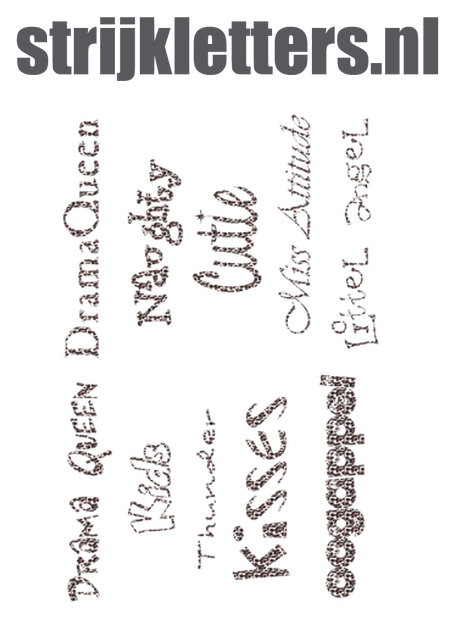 strijkletters.nl
Drama Queen
Naughty
Cutie
Miss Attitude
LitteL angeL
Drama Queen
Kids
Thunder
Kisses
oogappel